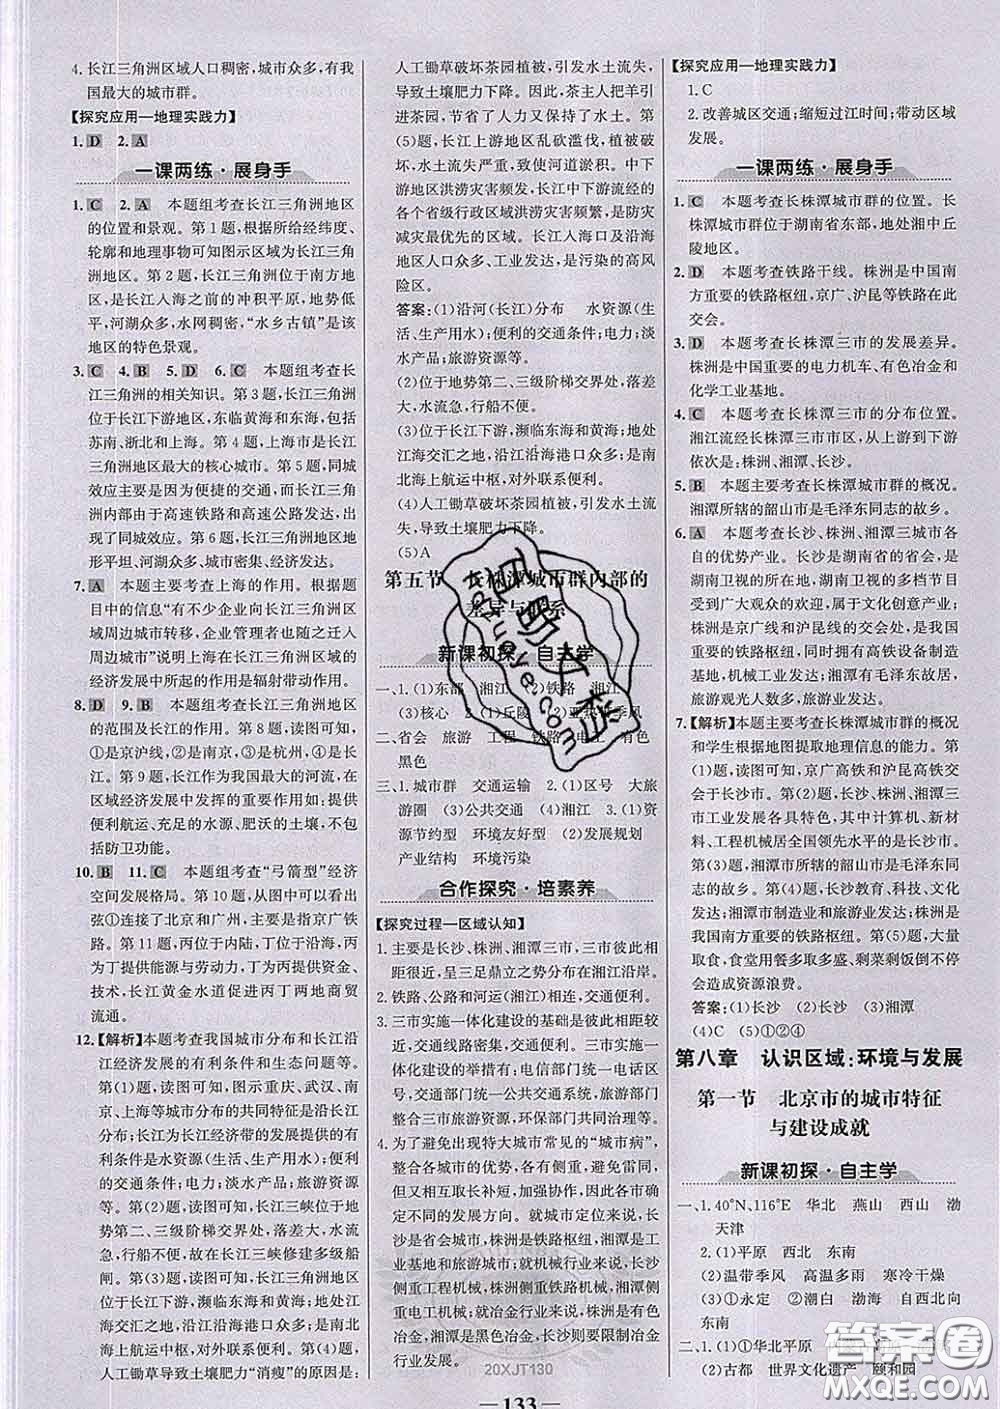 4. 长江三角洲区域人口稠密,城市众多,有我
国最大的城市群。
【探究应用—地理实践力】
1. D 2. A
一课两练·展身手
1. C 2. A 本题组考查长江三角洲地区
的位置和景观。第1题,根据所给经纬度、
轮廓和地理事物可知图示区域为长江三角
洲地区。第2题,长江三角洲位于南方地
区,是长江入海之前的冲积平原,地势低
平,河湖众多,水网稠密,“水乡古镇”是该
地区的特色景观。
3. C 4. B 5. D 6. C 本题组考查长
江三角洲的相关知识。第3题,长江三角洲
位于长江下游地区,东临黄海和东海,包括
苏南、浙北和上海。第4题,上海市是长江
三角洲地区最大的核心城市。第5题,同城
效应主要是因为便捷的交通,而长江三角
洲内部由于高速铁路和高速公路发达,出
现了同城效应。第6题,长江三角洲地区地
形平坦,河湖众多,城市密集,经济发达。
7. A 本题主要考查上海的作用。根据题
目中的信息“有很多企业从上海向长江三
角洲区域周边城市转移,企业管理者也随之迁入
周边城市”说明上海在长江三角洲区域的
经济发展中所起的作用是辐射带动作用。
8. D 9. B 本题组考查长江三角洲地区
的范围及长江的作用。第8题,读图可知,
①是京沪线,②是南京,③是杭州,④是长
江。第9题,长江作为我国最大的河流,在
区域经济发展中发挥的重要作用如:提供
便利航运、充足的水源、肥沃的土壤,不包
括防卫功能。
10. B 11. C 本题组考查“弓箭型”经济
空间发展格局。第10题,从图中可以看出
弦①连接了北京和广州,故是指京广铁
路。第11题,丙位于内陆,丁位于沿海,丙
为丁提供能源与劳动力,丁为丙提供资金、
技术,长江黄金水道促进丙丁两地商贸
流通。
12.【解析】本题考查我国城市分布和长江沿
江经济发展的有利条件和生态问题等。
第(1)题,从图中可以看出重庆、武汉、南
京、上海等城市分布的共同特征是沿长江
分布;长江为长江经济带的发展提供的有
利条件是水资源(生活、生产用水);便利
的交通条件;电力;淡水产品;旅游资源
等。第(2)题,读图可知,长江三峡位于地
势第二、三级阶梯交界处,落差大,水流
急,行船不便,故在长江三峡修建多级船
闸。第(3)题,读图可知,长江三角洲地区
位于长江下游,濒临东海和黄海;地处江
海交汇之地,沿江沿海港口众多;南北海
上航运中枢,对外联系便利。第(4)题,
人工锄草导致土壤肥力“消瘦”的原因是:
人工锄草破坏茶园植被,引发水土流失,
导致土壤肥力下降。因此,茶主人把羊引
进茶园,节省了人力又保持了水土。第
(5)题,长江上游地区乱砍滥伐,植被破坏
水土流失严重,致使河道淤积。中下
游地区的洪涝灾害频发,长江中下游流经的
各个省级行政区域洪涝灾害频繁,是防灾
减灾最优先的区域。长江入海口及沿海
地区人口众多、工业发达,是污染的高风
险区。
答案:(1)沿河(长江)分布 水资源(生
活、生产用水);便利的交通条件;电力;淡
水产品;旅游资源等。
(2)位于地势第二、三级阶梯交界处,落差
大,水流急,行船不便。
(3)位于长江下游,濒临东海和黄海;地处
江海交汇之地,沿江沿海港口众多;南北
海上航运中枢,对外联系便利。
(4)人工锄草破坏茶园植被,引发水土流
失,导致土壤肥力下降。
(5)A
第五节 长株潭城市群内部的
差异与联系
新课初探·自主学
一、1.(1)东部 湘江 (2)铁路 湘江
(3)核心 2.(1)丘陵 (2)亚热带季风
二、省会 旅游 工程 铁路 电工 有色
黑色
三、1.城市群 交通运输 2.(1)区号 大旅
游圈 (3)公共交通 (4)湘江 3.(1)资
源节约型 环境友好型 (2)发展规划
产业结构 环境污染
合作探究·培素养
【探究过程—区域认知】
1. 主要是长沙、株洲、湘潭三市,三市彼此相
距很近,呈三足鼎立之势分布在湘江沿岸。
2. 铁路、公路和河运(湘江)相连,交通便利。
3. 三市实施一体化建设的基础是彼此相距较
近,交通线路密集,交通便利。三市实施的
一体化建设主要有:电信部门统一电话区
号、金融部门统一结算、旅游部门共同开发
三市旅游资源、环保部门共同治理污染等。
4. 为了避免出现特大城市常见的“城市病”,
整合各城市的优势,各有侧重,避免雷同,
但又互相取长补短,加强协作,共同做大,
共同发展。因此,需要根据各城市的优势
确定不同的发展方向。就城市定位来说,
长沙是省会城市,株洲是重要的交通枢纽,
湘潭是旅游城市;就机械行业来看,长沙
侧重工程机械,株洲侧重铁路机械,湘潭侧
重电工机械;就冶金行业来看,株洲是有色
冶金,湘潭是黑色冶金,长沙则要限制冶金
行业发展。
【探究应用—地理实践力】
1. C
2. 改善城区交通;缩短过江时间;带动区域
发展。
一课两练·展身手
1. C 本题考查长株潭城市群的位置。长
株潭城市群位于湖南省东部,地处湘中丘
陵地区。
2. D 本题考查铁路干线。株洲是中国南
方重要的铁路枢纽,京广、沪昆等铁路在此
交会。
3. D 本题考查长株潭三市的发展差异。
株洲是中国重要的电力机车、有色冶金和
化学工业基地。
4. C 本题考查长株潭三市的分布位置。
湘江流经长株潭三市市区,从上游到下游
依次是:株洲、湘潭、长沙。
5. B 本题考查长株潭城市群的概况。
湘潭所辖的韶山市是毛泽东同志的故乡。
6. A 本题考查长沙、株洲、湘潭三城市各
自的优势产业。长沙是湖南省的省会,有
湖南卫视,湖南卫视的多档节目
深受广大观众的欢迎,属于文化创意产业;
株洲是京广线和沪昆线的交会处,是我国
南方重要的铁路枢纽,适合布局高铁设备制造
基地,机械工业发达;湘潭有毛泽东故居,
旅游观光人数多,旅游业发达。
7.【解析】本题主要考查长株潭城市群的概况
和学生根据地图提取地理信息的能力。第
(1)题,读图可知,京广高铁和沪昆高铁交
会于长沙市。第(2)题,长株潭三市的工业
发展各具特色,其中计算机、新材
料、工程机械居全国领先水平的是长沙市。
第(3)题,湘潭市所辖的韶山市是毛泽东同
志的故乡。第(4)题,长沙教育、科技、文化
发达,湘潭市制造业和旅游业发达,株洲是
我国南方重要的铁路枢纽。第(5)题,大量
取食,食堂用餐多取多盛,剩菜剩饭很多会
造成资源浪费。
答案:(1)长沙 (2)长沙 (3)湘潭
(4)C (5)①②④
第八章 认识区域:环境与发展
第一节 北京市的城市特征
与建设成就
新课初探·自主学
一、1. 40°N、116°E 华北 燕山 西山 渤
天津
2.(1)平原 西北 东南
(2)温带季风 高温多雨 寒冷干燥
(3)①永定 ②潮白 渤海 ③西北
东南
二、1.(1)①华北平原
(2)古都 世界文化遗产 颐和园
20XJT130
— 133 —
答案圈
MXQE.COM